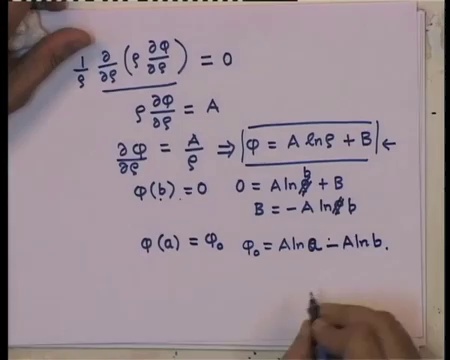 1/ρ ∂/∂ρ (ρ ∂φ/∂ρ) = 0
ρ ∂φ/∂ρ = A
∂φ/∂ρ = A/ρ ⇒ |φ = A ln ρ + B| ←
φ(b) = 0 0 = A ln b + B
B = - A ln b
φ(a) = φ₀ φ₀ = A ln a - A ln b.